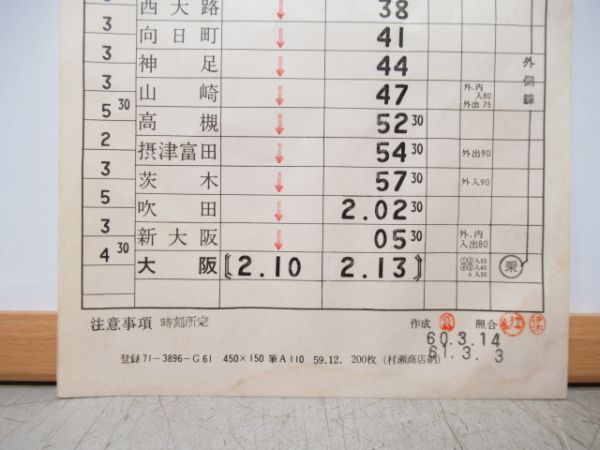 西大路 ↓ 38
3 向日町 ↓ 41
3 神足 ↓ 44 外側線
3 山崎 ↓ 47 外.内 入80 外出75
5 30 高槻 ↓ 52 30
2 摂津富田 ↓ 54 30 外出90
3 茨木 ↓ 57 30 外入90
5 吹田 ↓ 2.02 30
3 新大阪 ↓ 05 30 外.内 入出80
4 30 大阪 〔2.10 2.13〕 乗
注意事項 時刻所定 作成 照合 江
60.3.14
61.3.3
登録 71-3896-G61 450×150 筆A110 59.12. 200枚 (村瀬商店納)